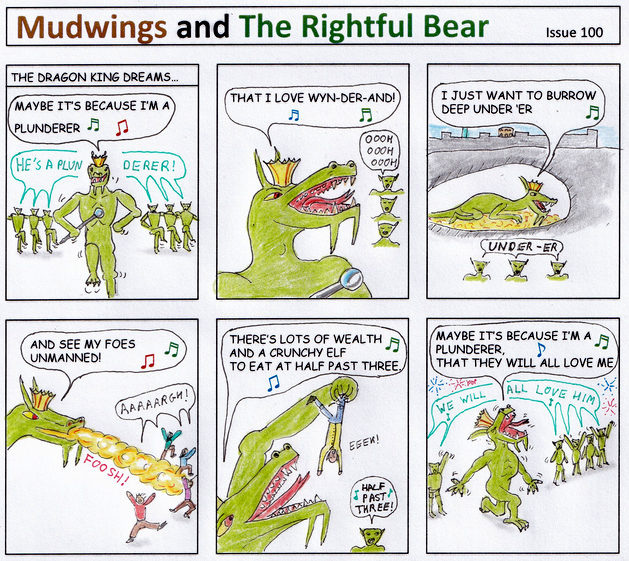 Mudwings and The Rightful Bear
Issue 100
THE DRAGON KING DREAMS...
MAYBE IT'S BECAUSE I'M A
PLUNDERER
HE'S A PLUN DERER!
THAT I LOVE WYN-DER-AND!
OOOH
OOOH
OOOH
I JUST WANT TO BURROW
DEEP UNDER 'ER
UNDER-ER
AND SEE MY FOES
UNMANNED!
AAAAARGH!
FOOSH!
THERE'S LOTS OF WEALTH
AND A CRUNCHY ELF
TO EAT AT HALF PAST THREE.
EEEK!
HALF
PAST
THREE!
MAYBE IT'S BECAUSE I'M A
PLUNDERER,
THAT THEY WILL ALL LOVE ME
WE WILL ALL LOVE HIM